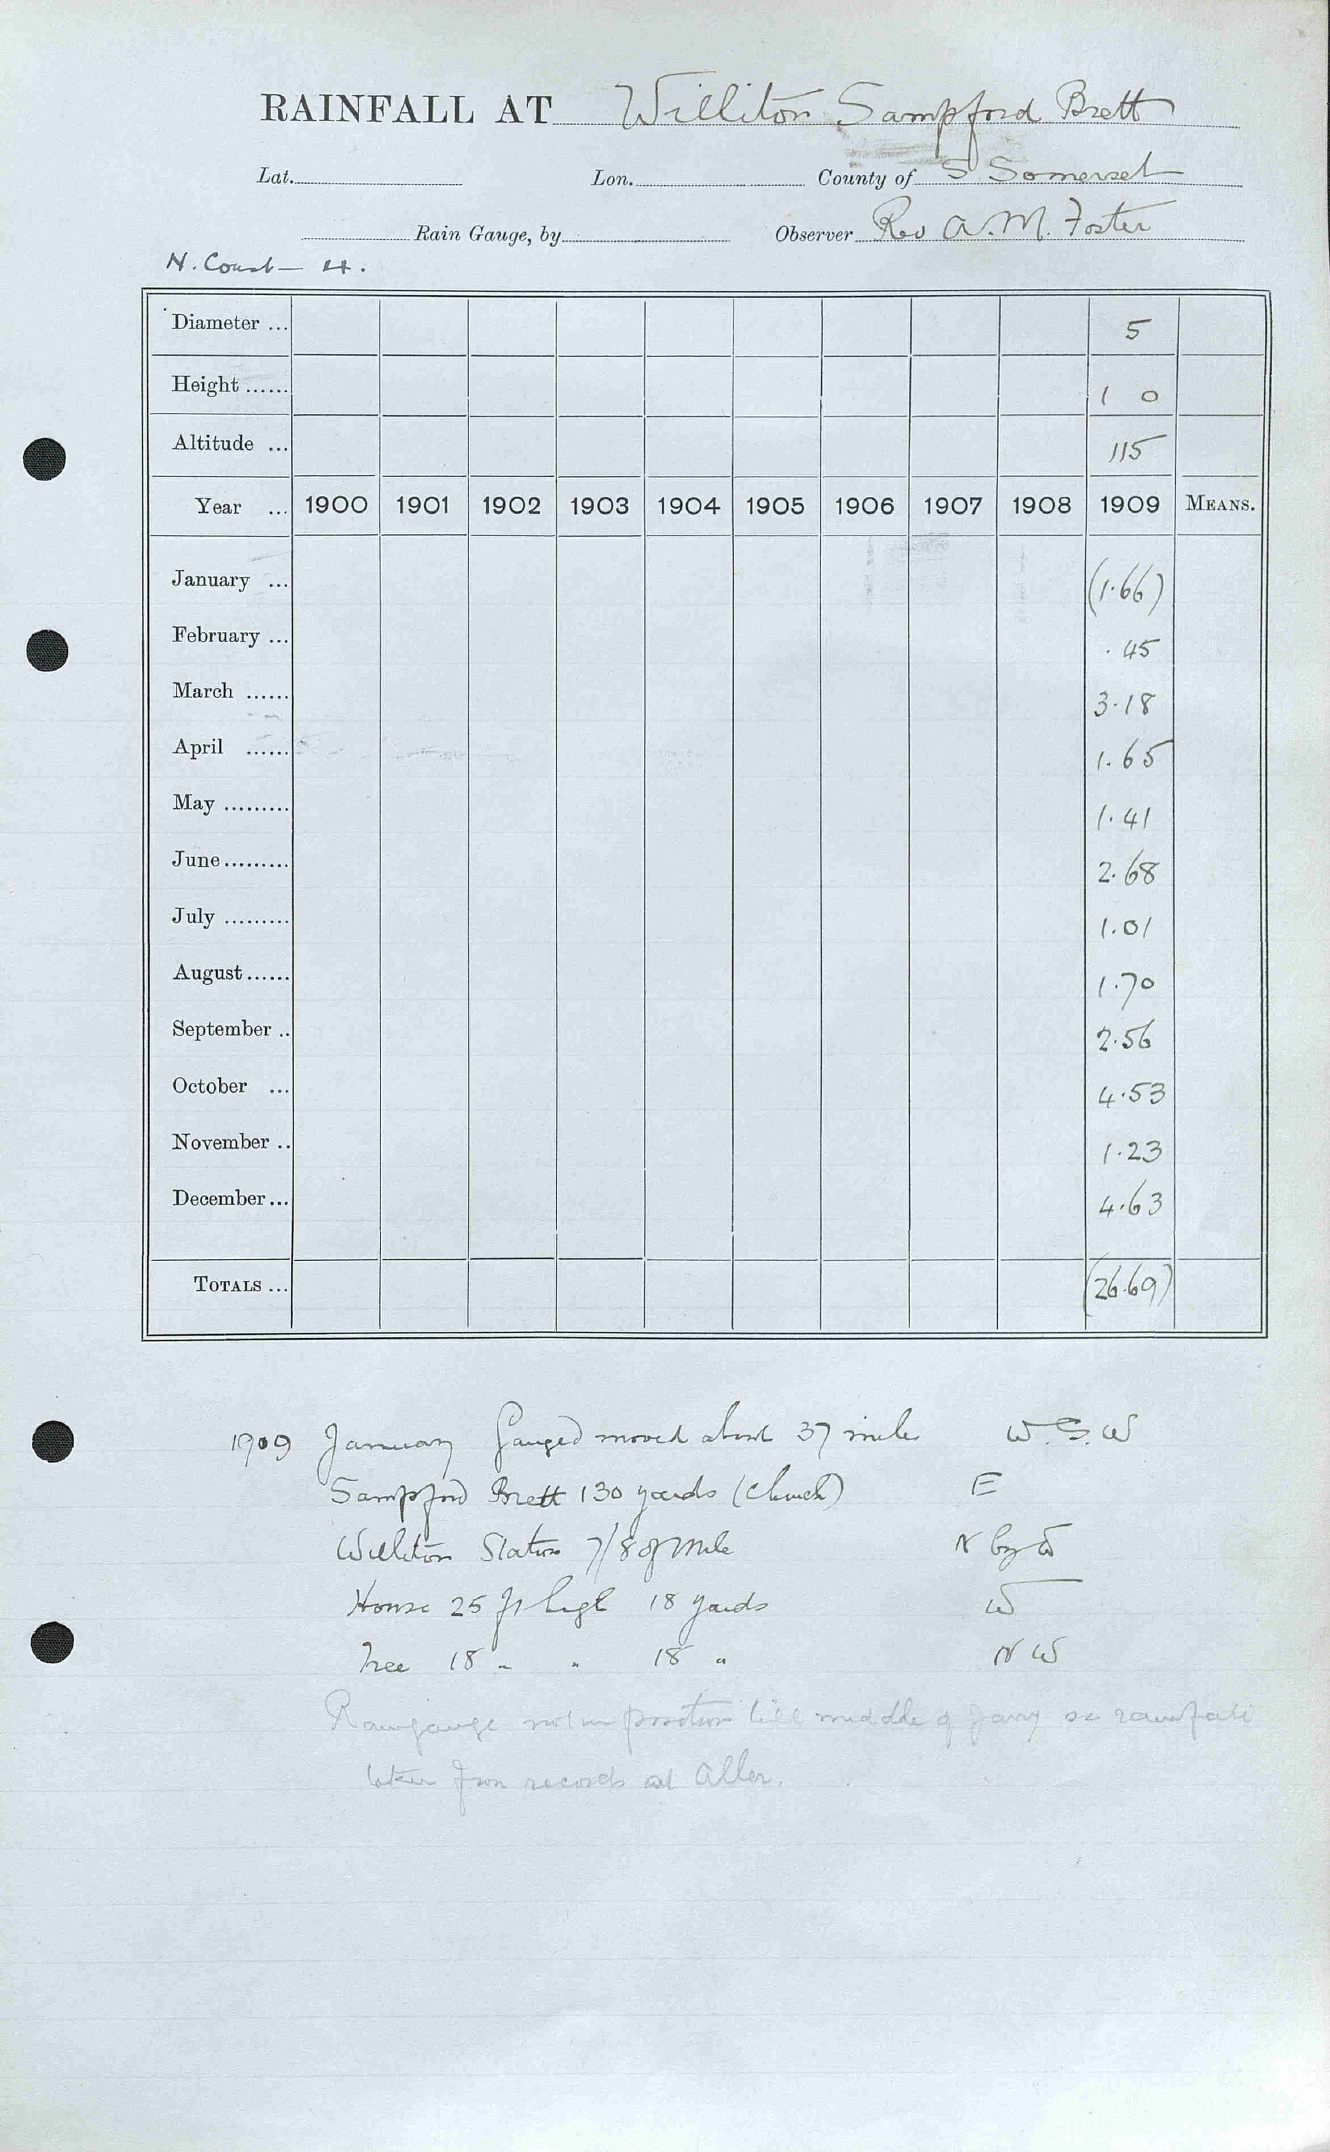 RAINFALL AT Williton Sampford Brett
Lat. Lon. County of S Somerset
Rain Gauge, by Observer Rev A. M. Foster
N. Coast — 4.
Diameter ... 5
Height ...... 1 0
Altitude ... 115
Year ... 1900 1901 1902 1903 1904 1905 1906 1907 1908 1909 MEANS.
January ... (1.66)
February ... .45
March ...... 3.18
April ...... 1.65
May ......... 1.41
June ......... 2.68
July ......... 1.01
August ...... 1.70
September .. 2.56
October ... 4.53
November .. 1.23
December ... 4.63
TOTALS ... (26.69)
1909 January Gauged moved about 37 miles W.S.W
Sampford Brett 130 yards (Church) E
Williton Station 7/8 of Mile N by W
House 25 ft high 18 yards W
Tree 18 " " 18 " N W
Raingauge not in position till middle of Jany so rainfall
taken from records at Aller.